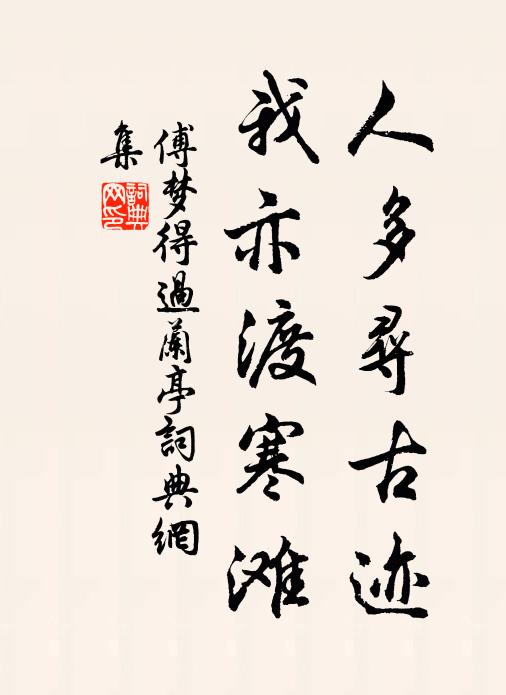 人多寻古迹
我亦渡寒滩
傅梦得過蘭亭詞典網
集
詞典
网印